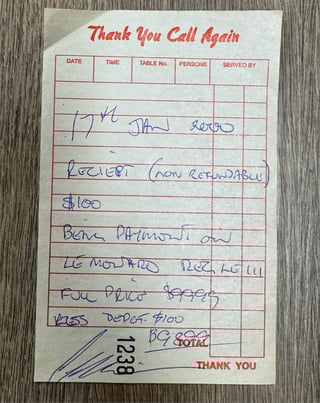 Thank You Call Again
DATE TIME TABLE No. PERSONS SERVED BY
17th JAN 2000
RECIEPT (NON REFUNDABLE)
$100
BEING PAYMENT ON
LE MONTARD REC LE III
FULL PRICE $9999
LESS DEPOT. $100
TOTAL
1238
THANK YOU